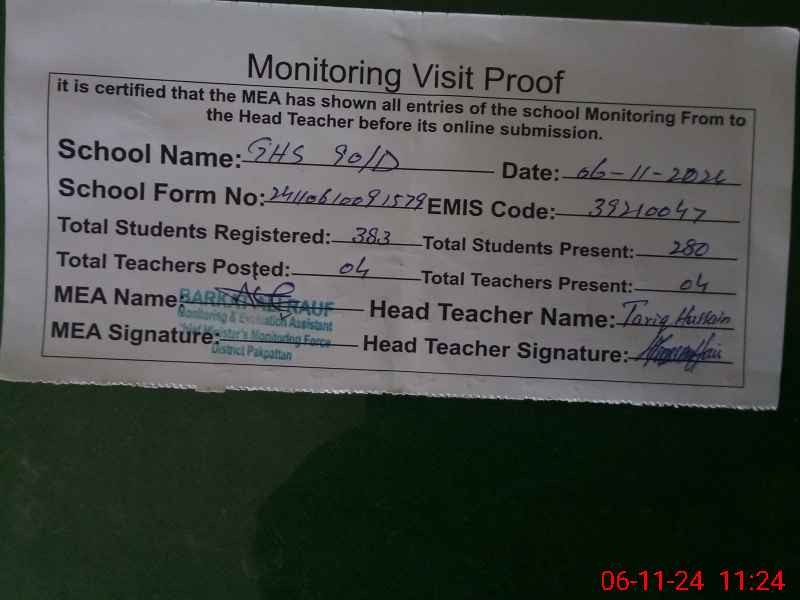 Monitoring Visit Proof
it is certified that the MEA has shown all entries of the school Monitoring From to
the Head Teacher before its online submission.
School Name: GHS 90/D Date: 06-11-2024
School Form No: 24110610091579 EMIS Code: 39210047
Total Students Registered: 383 Total Students Present: 280
Total Teachers Posted: 04 Total Teachers Present: 04
MEA Name: RAUF Head Teacher Name: Tariq Hussain
Monitoring & Evaluation Assistant
Chief Minister's Monitoring Force
MEA Signature: Head Teacher Signature:
District Pakpattan
06-11-24 11:24